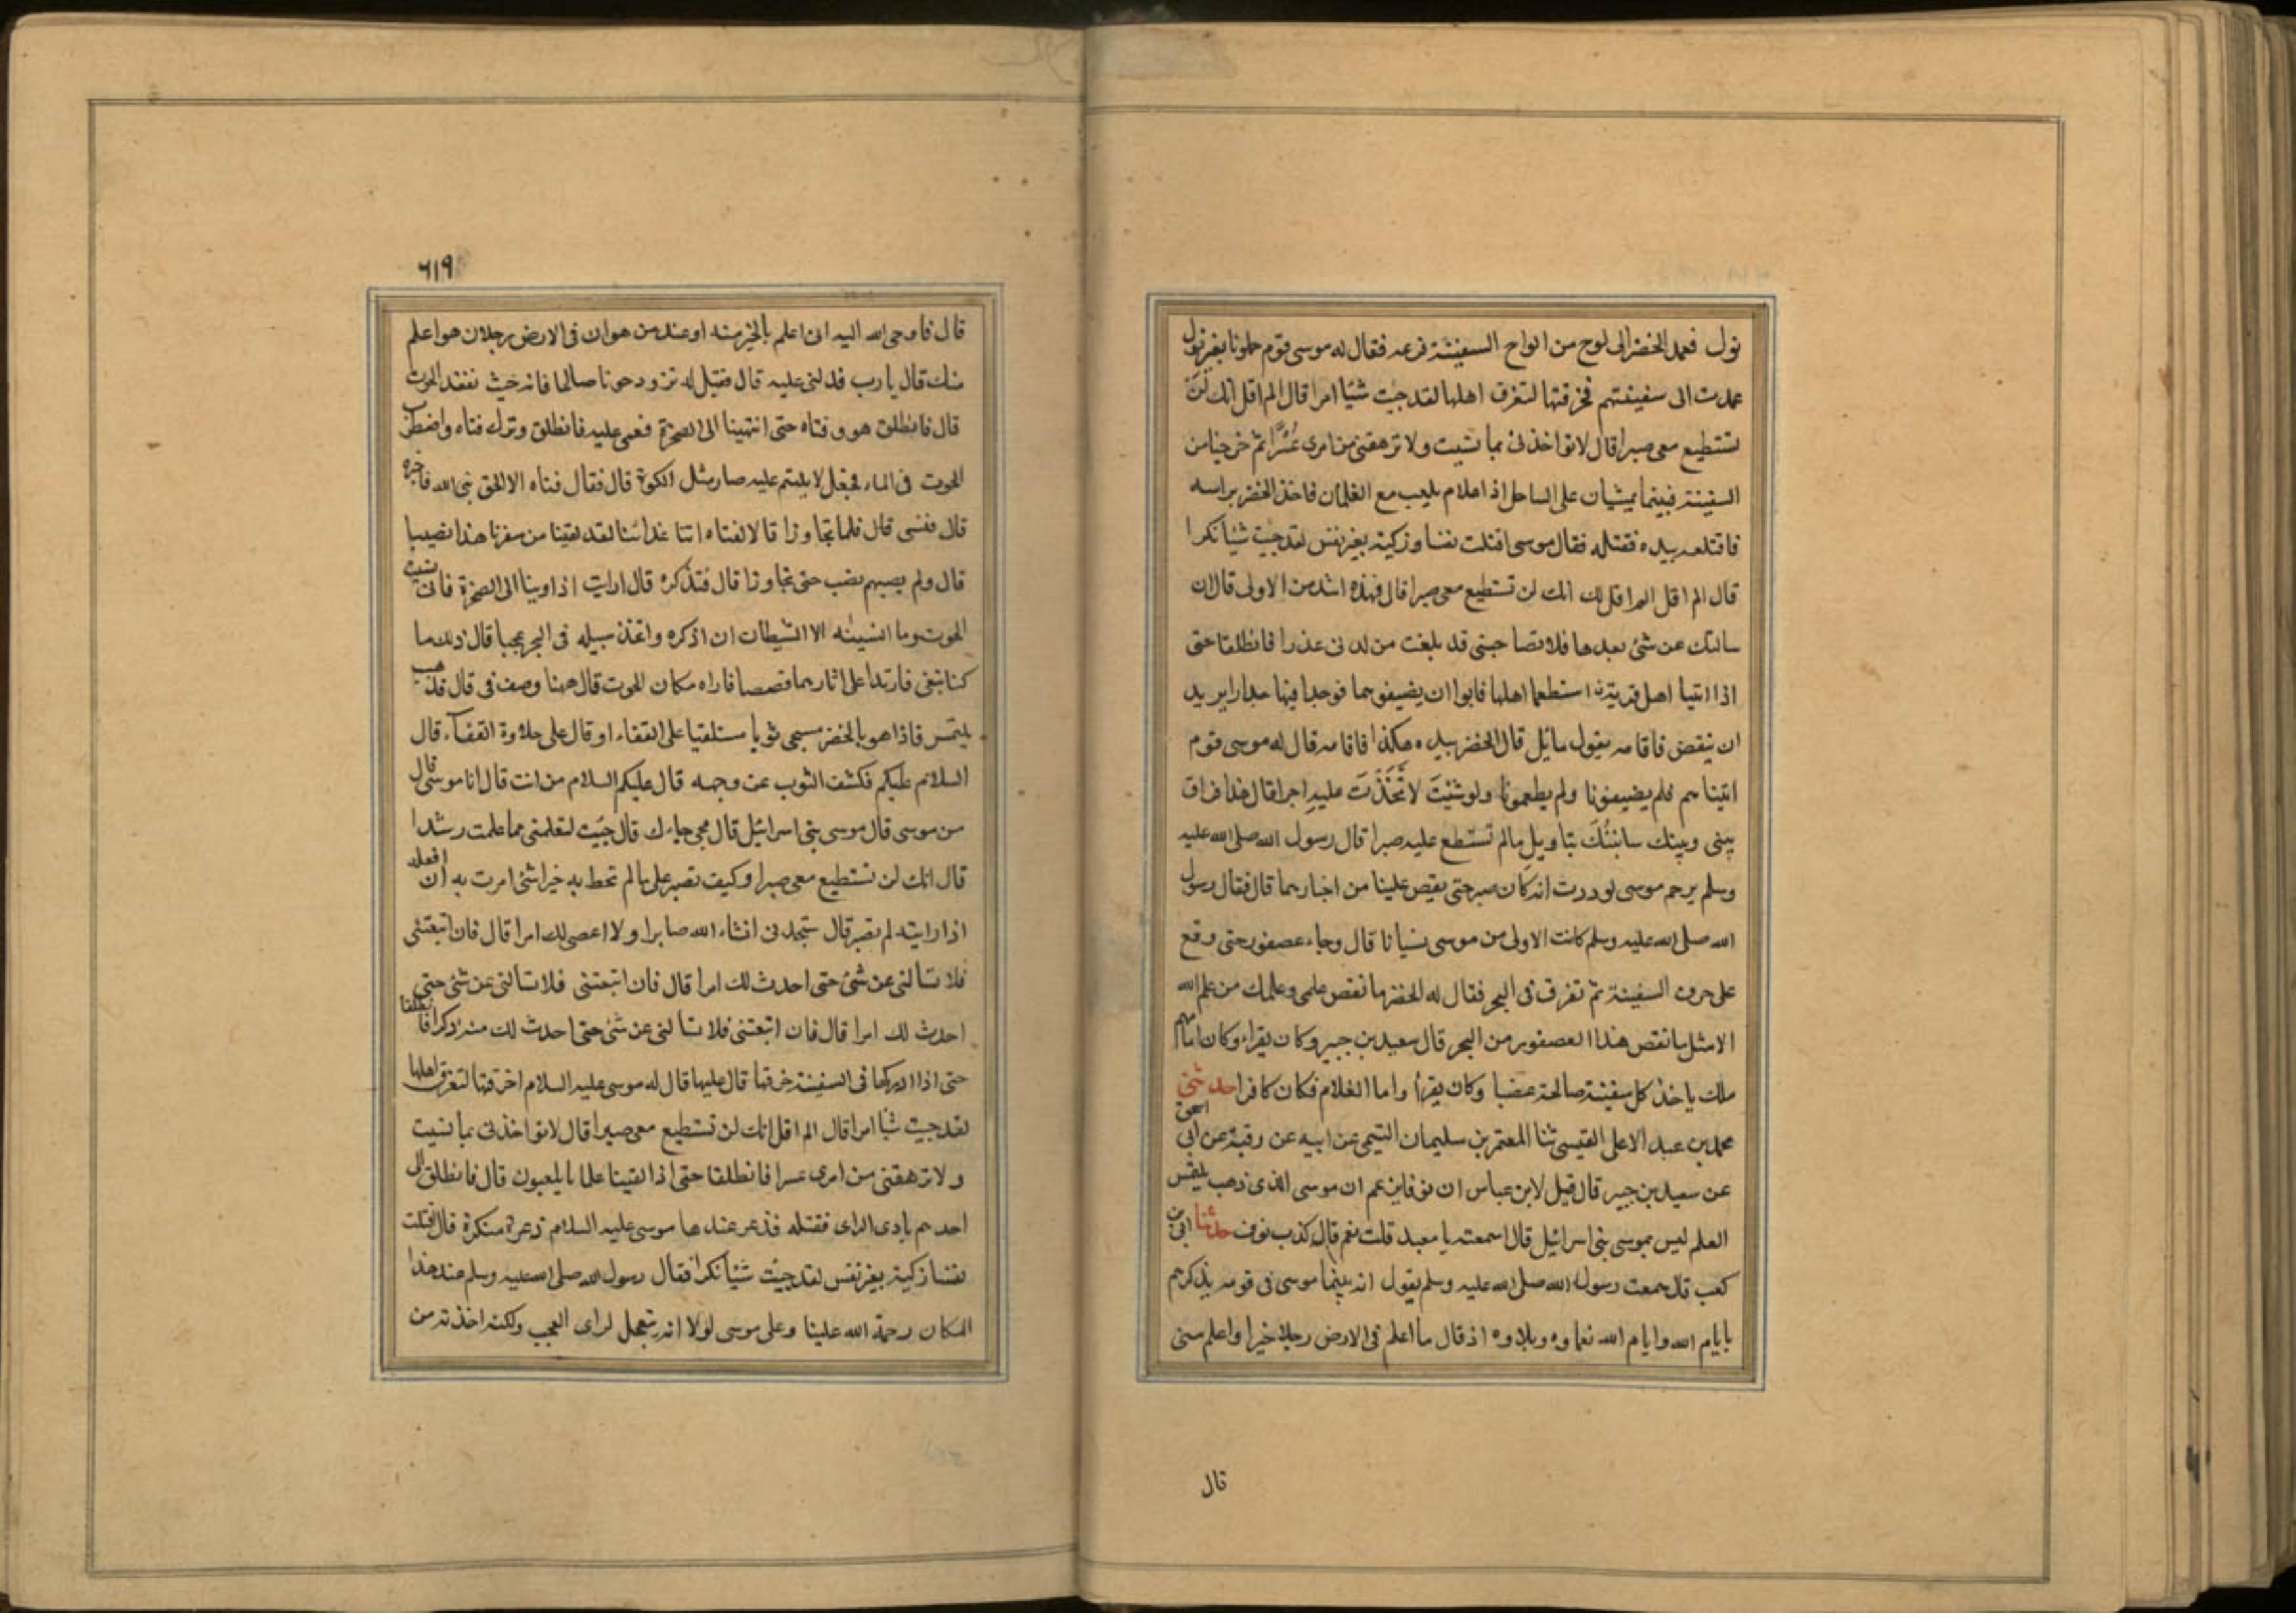 نول فعمد الخضر الى لوح من الواح السفينة فنزعه فقال له موسى قوم حملونا بغير نول
عمدت الى سفينتهم فخرقتها لتغرق اهلها لقد جيت شيًا امرا قال الم اقل انك لن
تستطيع معى صبرا قال لا تواخذنى بما نسيت ولا ترهقنى من امرى عُسْرًا ثم خرجنا من
السفينة فبينما يمشيان على الساحل اذا غلام يلعب مع الغلمان فاخذ الخضر براسه
فاقتلعه بيده فقتله فقال موسى اقتلت نفسا زكية بغير نفس لقد جيت شيًا نكرا
قال الم اقل الم اقل لك انك لن تستطيع معى صبرا قال فهذه اشد من الاولى قال ان
سالتك عن شئ بعدها فلا تصاحبنى قد بلغت من لدنى عذرا فانطلقا حتى
اذا اتيا اهل قرية استطعما اهلها فابوا ان يضيفوهما فوجدا فيها جدارا يريد
ان ينقض فاقامه يقول مائل قال الخضر بيده هكذا فاقامه قال له موسى قوم
اتيناهم فلم يضيفونا ولم يطعمونا ولو شئتَ لاتَّخَذْتَ عليه اجرا قال هذا فراق
بينى وبينك سانبئُكَ بتاويل مالم تستطع عليه صبرا قال رسول الله صلى الله عليه
وسلم يرحم موسى لوددت انه كان صبر حتى يقص علينا من اخبارهما قال فقال رسول
الله صلى الله عليه وسلم كانت الاولى من موسى نسيانا قال وجاء عصفور حتى وقع
على حرف السفينة ثم نقر فى البحر فقال له الخضر ما نقص علمى وعلمك من علم الله
الا مثل ما نقص هذا العصفور من البحر قال سعيد بن جبير وكان يقراء وكان امامهم
ملك ياخذ كل سفينة صالحة غصبا وكان يقرأ واما الغلام فكان كافرا حدثنى
محمد بن عبد الاعلى القيسى ثنا المعتمر بن سليمان التيمى عن ابيه عن رقبة عن ابى اسحق
عن سعيد بن جبير قال قيل لابن عباس ان نوفا يزعم ان موسى الذى ذهب يلتمس
العلم ليس بموسى بنى اسرائيل قال اسمعته يا سعيد قلت نعم قال كذب نوف حدثنا ابى بن
كعب قال سمعت رسول الله صلى الله عليه وسلم يقول انه بينما موسى فى قومه يذكرهم
بايام الله وايام الله نعماوه وبلاوه اذ قال ما اعلم فى الارض رجلا خيرا واعلم منى
قال
٦١٩
قال فاوحى الله اليه انى اعلم بالخير منه او عند من هو ان فى الارض رجلا ن هو اعلم
منك قال يا رب فدلنى عليه قال فقيل له تزود حوتا مالحا فانه حيث تفقد الحوت
قال فانطلق هو وفتاه حتى انتهينا الى الصخرة فعمى عليه فانطلق وترك فتاه واضطرب
الحوت فى الماء فجعل لا يلتئم عليه صار مثل الكوة قال فقال فتاه الا الحق نبى الله فاخبره
قال فنسى قال فلما تجاوزا قال لفتاه اتنا غدائنا لقد لقينا من سفرنا هذا نصيبا
قال ولم يصبهم نصب حتى تجاوزا قال فتذكره قال ارايت اذ اوينا الى الصخرة فانى نسيت
الحوت وما انسينه الا الشيطان ان اذكره واتخذ سبيله فى البحر عجبا قال ذلك ما
كنا نبغى فارتدا على اثارهما قصصا فاراه مكان الحوت قال ههنا وصف فى قال فذهب
يلتمس فاذا هو بالخضر مسجى ثوبا مستلقيا على القفاء او قال على حلاوة القفاء قال
السلام عليكم فكشف الثوب عن وجهه قال عليكم السلام من انت قال انا موسى قال
من موسى قال موسى بنى اسرائيل قال مجى جاءك قال جيت لتعلمنى مما علمت رشدا
قال انك لن تستطيع معى صبرا وكيف تصبر على مالم تحط به خبرا شئ امرت به ان افعله
اذا رايته لم تصبر قال ستجدنى انشاء الله صابرا ولا اعصى لك امرا قال فان اتبعتنى
فلا تسالنى عن شئ حتى احدث لك امرا قال فان اتبعتنى فلا تسالنى عن شئ حتى
احدث لك امرا قال فان اتبعتنى فلا تسألنى عن شئ حتى احدث لك منه ذكرا فانطلقا
حتى اذا اركبها فى السفينة خرقها قال عليها قال له موسى عليه السلام اخرقتها لتغرق اهلها
لقد جيت شيًا امرا قال الم اقل انك لن تستطيع معى صبرا قال لا تواخذنى بما نسيت
ولا ترهقنى من امرى عسرا فانطلقا حتى اذا لقينا غلمانا يلعبون قال فانطلق الى
احدهم بادى الراى فقتله فذعر عندها موسى عليه السلام ذعرة منكرة قال اقتلت
نفسا زكية بغير نفس لقد جيئت شيئا نكرا فقال رسول الله صلى الله عليه وسلم عند هذا
المكان رحمة الله علينا وعلى موسى لولا انه تعجل لراى العجب ولكنه اخذته من